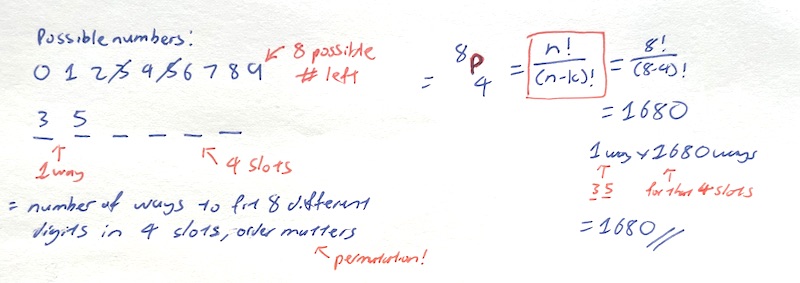 Possible numbers:
0 1 2 3 4 5 6 7 8 9
8 possible
# left
3 5 _ _ _ _
1 way
4 slots
= number of ways to fit 8 different
digits in 4 slots, order matters
permutation!
= 8P4 = n!/(n-k)! = 8!/(8-4)!
= 1680
1 way x 1680 ways
3 5 for the 4 slots
= 1680 //